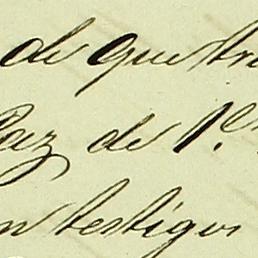 de que tra
Paz de 1.er
n testigos